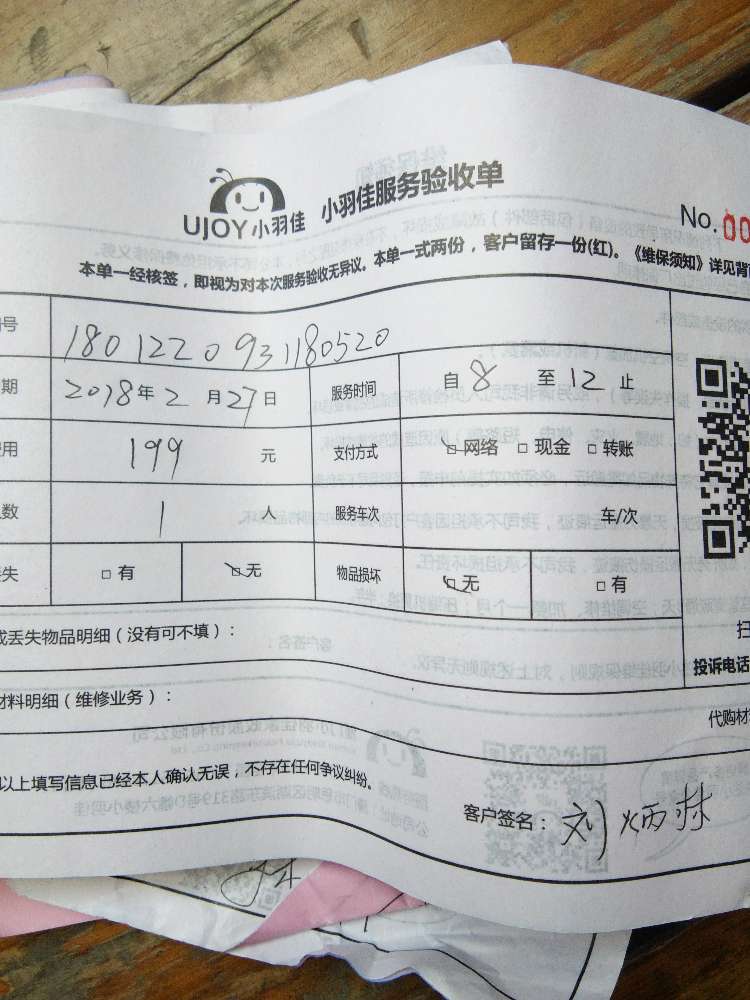 UJOY小羽佳 小羽佳服务验收单
No.00
本单一经核签，即视为对本次服务验收无异议。本单一式两份，客户留存一份(红)。《维保须知》详见背
号 1801220931180520
期 2018年2月27日 服务时间 自8至12止
用 199元 支付方式 □网络 □现金 □转账
数 1人 服务车次 车/次
失 □有 □无 物品损坏 □无 □有
或丢失物品明细（没有可不填）：
投诉电话
材料明细（维修业务）：
代购材
以上填写信息已经本人确认无误，不存在任何争议纠纷。
客户签名：刘炳林